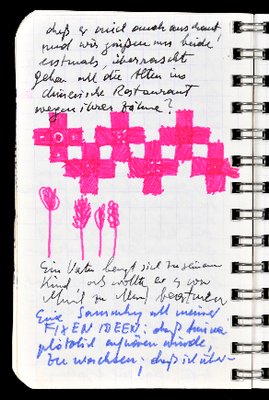 daß er mich auch anschaut
und wir grüßen uns beide
erstmals, überrascht
gehen all die Alten ins
chinesische Restaurant
wegen ihrer Zähne?
Ein Vater beugt sich zu seinem
Kind als wollte er es von
Mund zu Mund beatmen
Eine Sammlung all meiner
FIXEN IDEEN: daß
plötzlich aufhören würde,
zu wachsen; daß ich über-